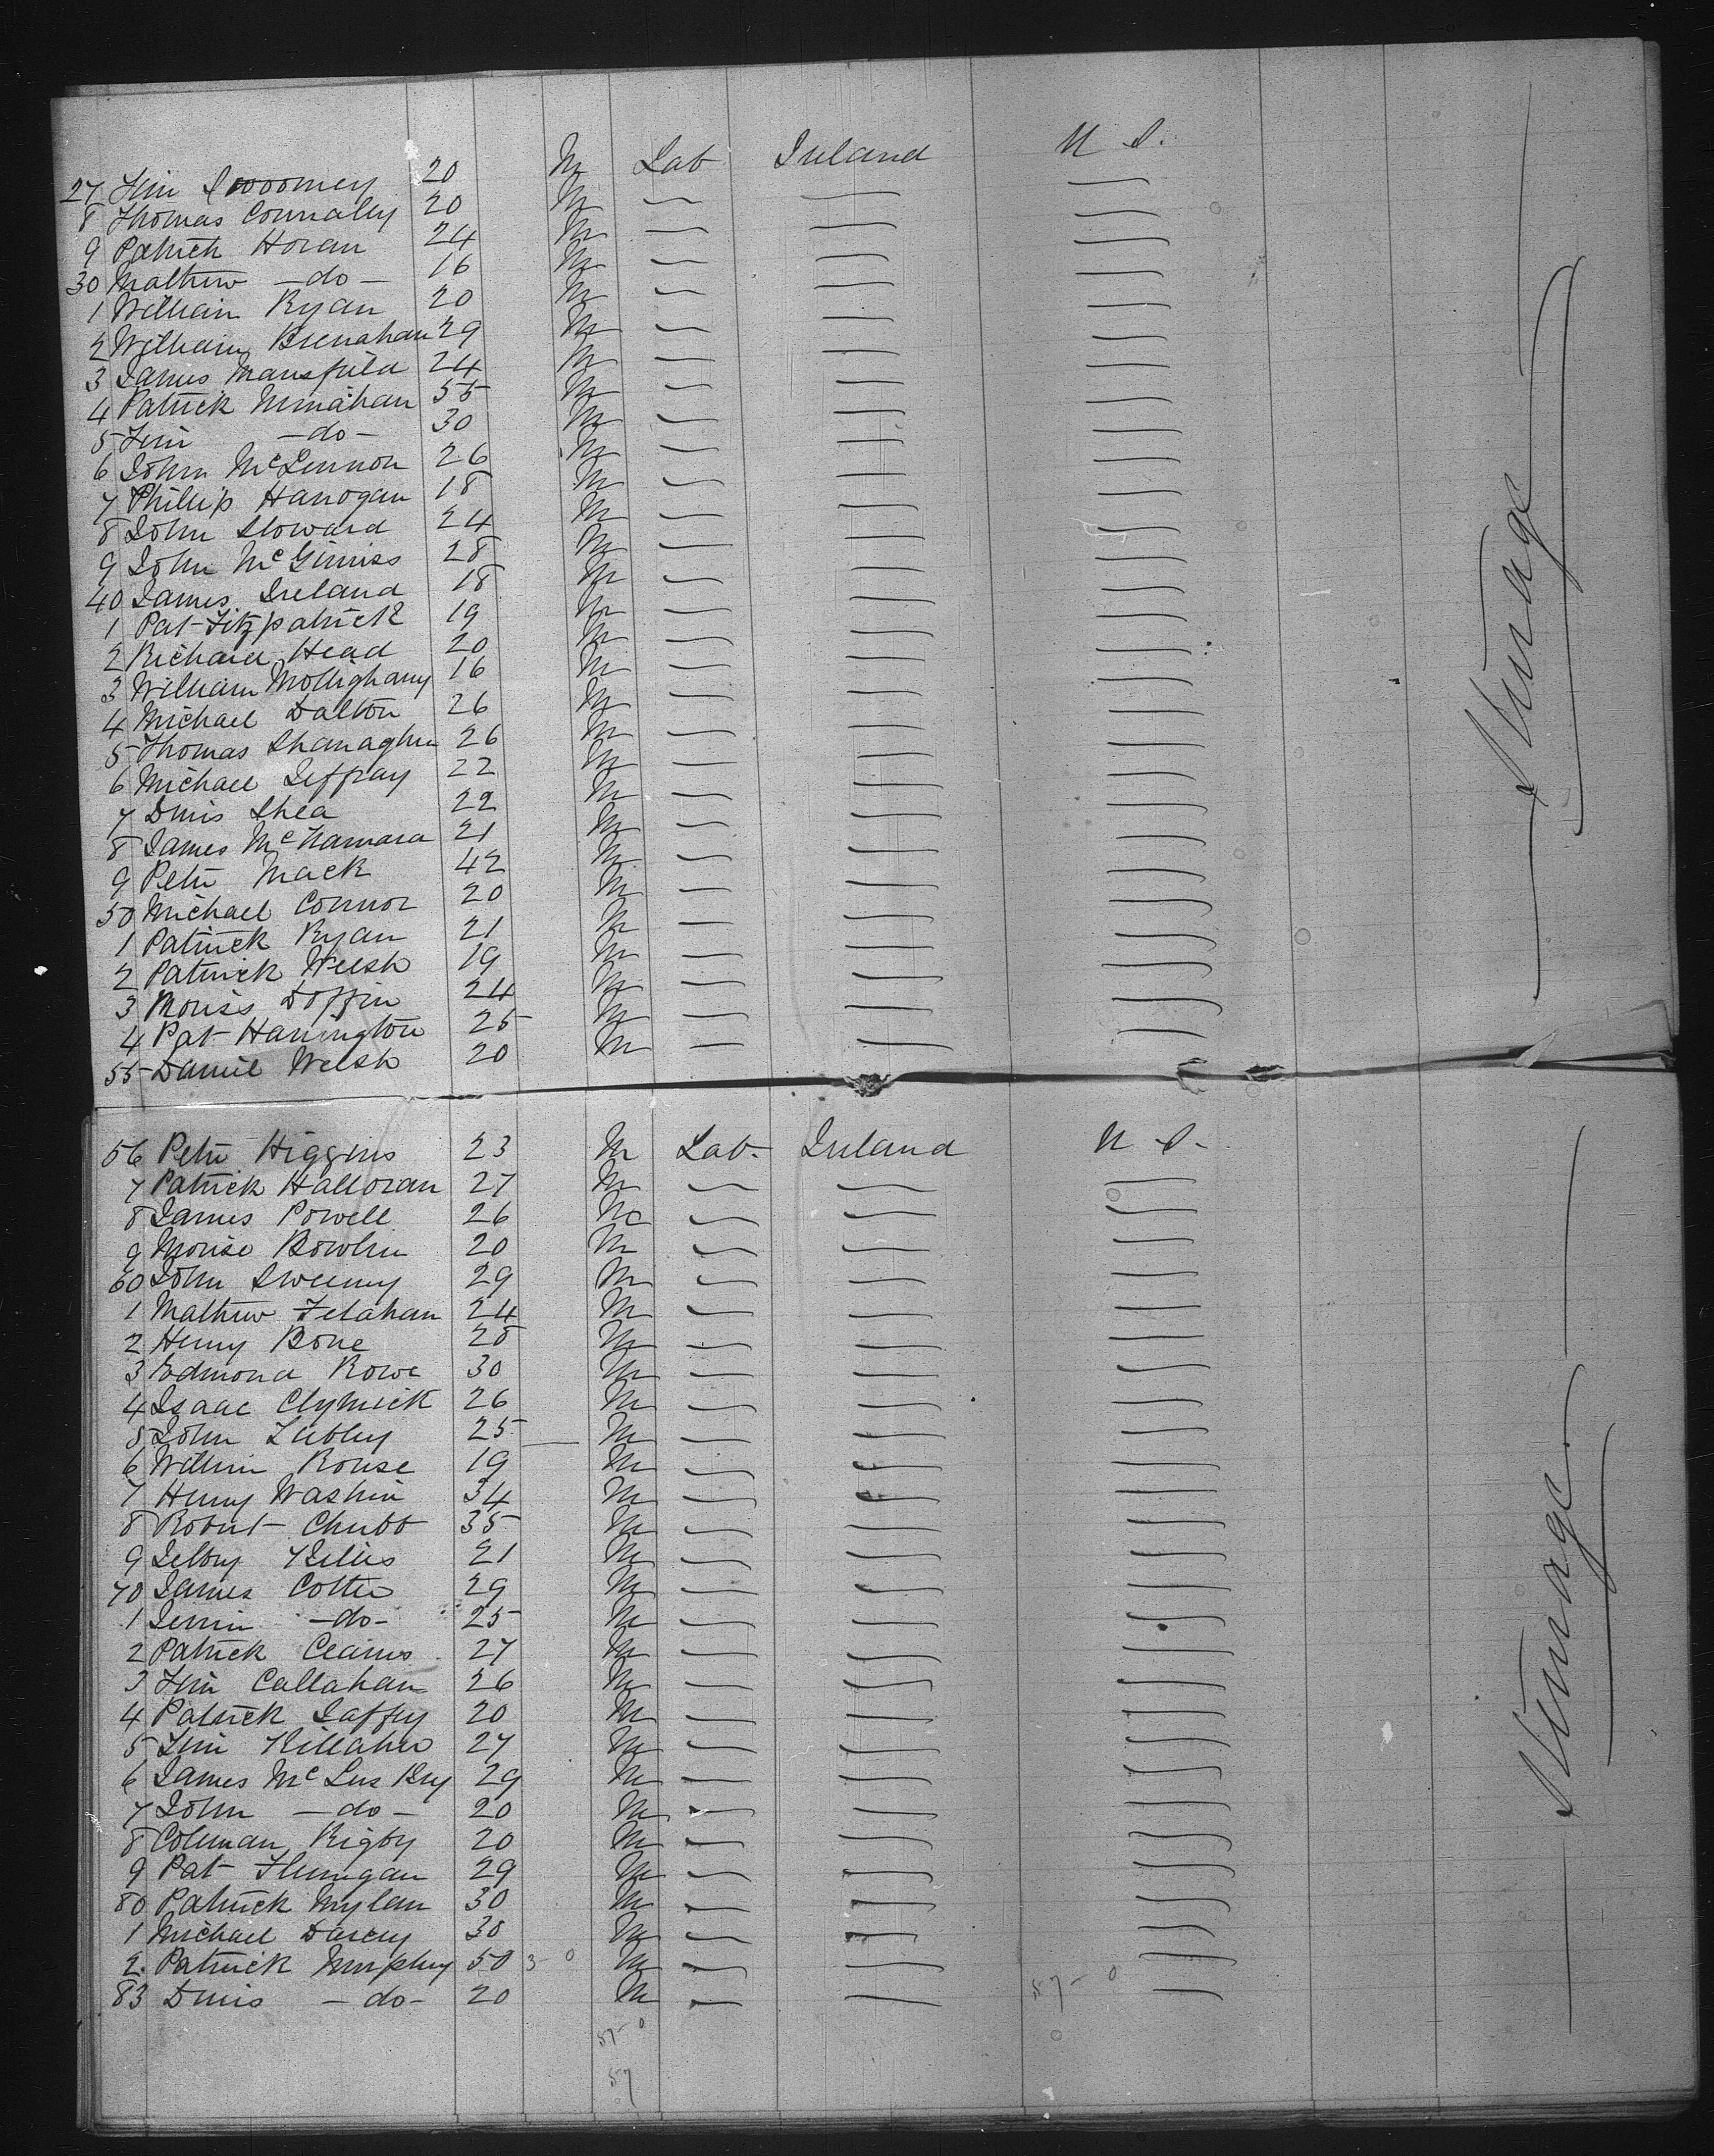 27 Jim Twoomey 20 M Lab Ireland U S.
8 Thomas Connally 20 M — — —
9 Patrick Horan 24 M — — —
30 Mathew —do— 16 M — — —
1 William Ryan 20 M — — —
2 William Brenahan 29 M — — —
3 James Mansfield 24 M — — —
4 Patrick Minahan 55 M — — —
5 Jim —do— 30 M — — —
6 John McLennon 26 M — — —
7 Phillip Hanogan 18 M — — —
8 John Howard 24 M — — —
9 John McGinniss 28 M — — —
40 James Ireland 18 M — — —
1 Pat Fitzpatrick 19 M — — —
2 Richard Head 20 M — — —
3 William 16 M — — —
4 Michael Dalton 26 M — — —
5 Thomas Shanaghen 26 M — — —
6 Michael Jeffray 22 M — — —
7 Dinis Shea 22 M — — —
8 James McNamara 21 M — — —
9 Peter Mack 42 M — — —
50 Michael Connor 20 M — — —
1 Patrick Ryan 21 M — — —
2 Patrick Welsh 19 M — — —
3 Moriss Doffin 24 M — — —
4 Pat Harrington 25 M — — —
55 Daniel Welsh 20 M — — —
Steerage
56 Peter Higgins 23 M Lab. Ireland U S.
7 Patrick Halloran 27 M — — —
8 James Powell 26 M — — —
9 Morise Bowlen 20 M — — —
60 John Sweeny 29 M — — —
1 Mathew Felahan 24 M — — —
2 Henry Bone 28 M — — —
3 Edmond Rowe 30 M — — —
4 Isaac Clymick 26 M — — —
5 John Libbey 25 M — — —
6 Willim Rouse 19 M — — —
7 Henry Washin 34 M — — —
8 Robert Chubb 35 M — — —
9 Selby Kellis 21 M — — —
70 James Cotter 29 M — — —
1 —do— 25 M — — —
2 Patrick Ceains 27 M — — —
3 Jim Callahan 26 M — — —
4 Patrick Laffey 20 M — — —
5 Jim Killaher 27 M — — —
6 James McLuskey 29 M — — —
7 John —do— 20 M — — —
8 Coleman Rigby 20 M — — —
9 Pat Flunigan 29 M — — —
80 Patrick Mylan 30 M — — —
1 Michael Darcey 30 M — — —
2 Patrick Murphey 50 3-0 M — — —
83 Dinis —do— 20 M — — 57-0 —
57-0
57
Steerage